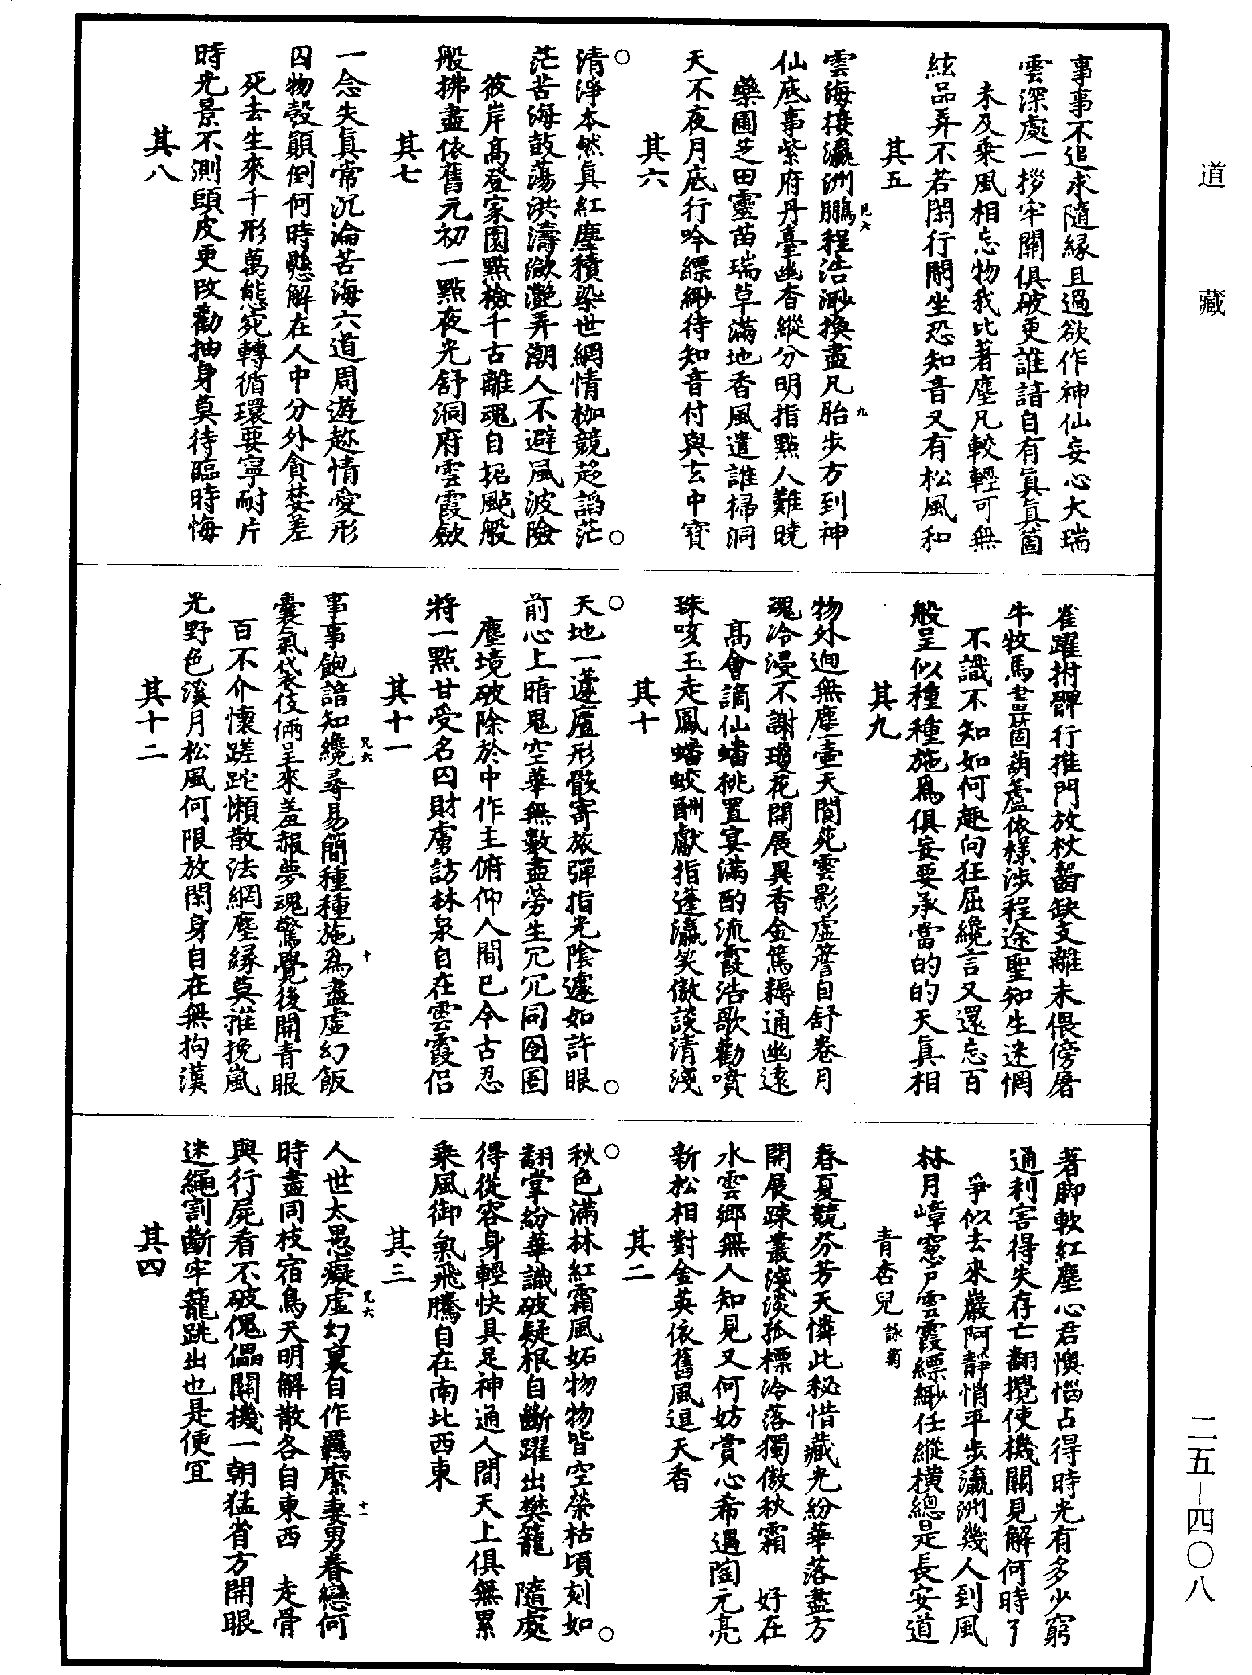 道藏
事事不追求隨緣且過欲作神仙妄心大瑞
雲深處一拶牢關俱破更誰諳自有眞眞箇
未及乘風相忘物我比著塵凡較輕可無
絃品弄不若閑行閑坐恐知音又有松風和
其五
雲海接瀛洲鵬程浩渺換盡凡胎步方到神
兄六
九
仙底事紫府丹臺幽杳縱分明指點人難曉
藥圃芝田靈苗瑞草滿地香風遣誰掃洞
天不夜月底行吟縹緲待知音付與玄中寳
其六
○清淨本然眞紅塵積染世網情枷競趍謟茫○
茫苦海鼓蕩洪濤瀲灧弄潮人不避風波險
筏岸高登家園點檢千古離魂自招颭般
般拂盡依舊元初一點夜光舒洞府雲霞歛
其七
一念失眞常沉淪苦海六道周遊趂情愛形
囚物彀顛倒何時懸解在人中分外貪婪差
死去生來千形萬態宛轉循環要寧耐片
時光景不測頭皮更改勸抽身莫待臨時悔
其八
雀躍拊髀行推門放杖齧缺支離未偎傍屠
牛牧馬晝箇葫蘆依樣涉程途聖知生迷惘
不識不知如何趣向狂屈纔言又還忘百
般呈似種種施爲俱妄要承當的的天眞相
其九
物外逈無塵壷天閴死雲影虛簷自舒卷月
魂冷浸不謝瓊花開展異香金篤耨通幽遠
高會謫仙蟠桃置宴滿酌流霞浩歌勸噴
珠咳玉走鳳蟠蛟酬獻指蓬瀛笑傲談清淺
其十
○天地一蘧廬形骸寄旅彈指光陰遽如許眼○
前心上暗鬼空華無數盡勞生冗冗同囹圄
塵境破除於中作主俯仰人間已今古忍
將一點甘受名囚財虜訪林泉自在雲霞侣
其十一
事事飽諳知纔尋易簡種種施為盡虛幻飯
兄六
十
囊氣袋伎倆呈來羞赧夢魂驚覺後開青眼
百不介懷蹉跎懶散法網塵緣莫推挽嵐
光野色溪月松風何限放閑身自在無拘漢
其十二
著脚軟紅塵心君懊惱占得時光有多少窮
通利害得失存亡翻攪使機關見解何時了
爭似去來巖阿靜悄平步瀛洲幾人到風
林月嶂窻戶雲霞縹緲任縱橫總是長安道
青杏兒 詠菊
春夏競芬芳天憐此秘惜藏光紛華落盡方
開展踈叢淺淡孤標冷落獨傲秋霜 好在
水雲鄉無人知見又何妨賞心希遇陶元亮
新松相對金英依舊風逗天香
其二
○秋色滿林紅霜風妬物物皆空榮枯頃刻如○
翻掌紛華識破疑根自斷躍出樊籠 隨處
得從容身輕快具足神通人間天上俱無累
乘風御氣飛騰自在南北西東
其三
人世太愚癡虛幻裏自作羈縻妻男眷戀何
兄六
十一
時盡同枝宿鳥天明解散各自東西 走骨
與行屍看不破傀儡關機一朝猛省方開眼
迷繩割斷牢籠跳出也是便宜
其四
二五—四〇八